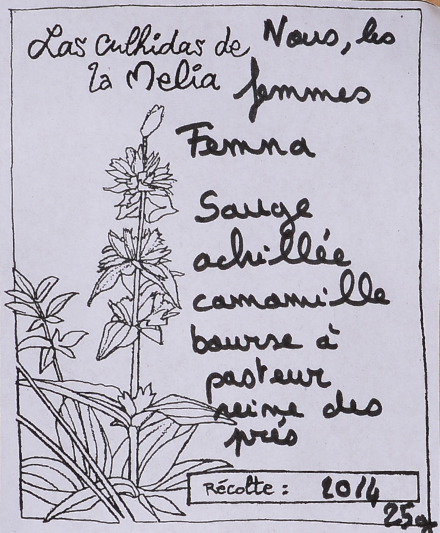 Las culhidas de
la Melia
Nous, les
femmes
Femna
Sauge
achillée
camomille
bourse à
pasteur
reine des
prés
Récolte : 2014
25gr